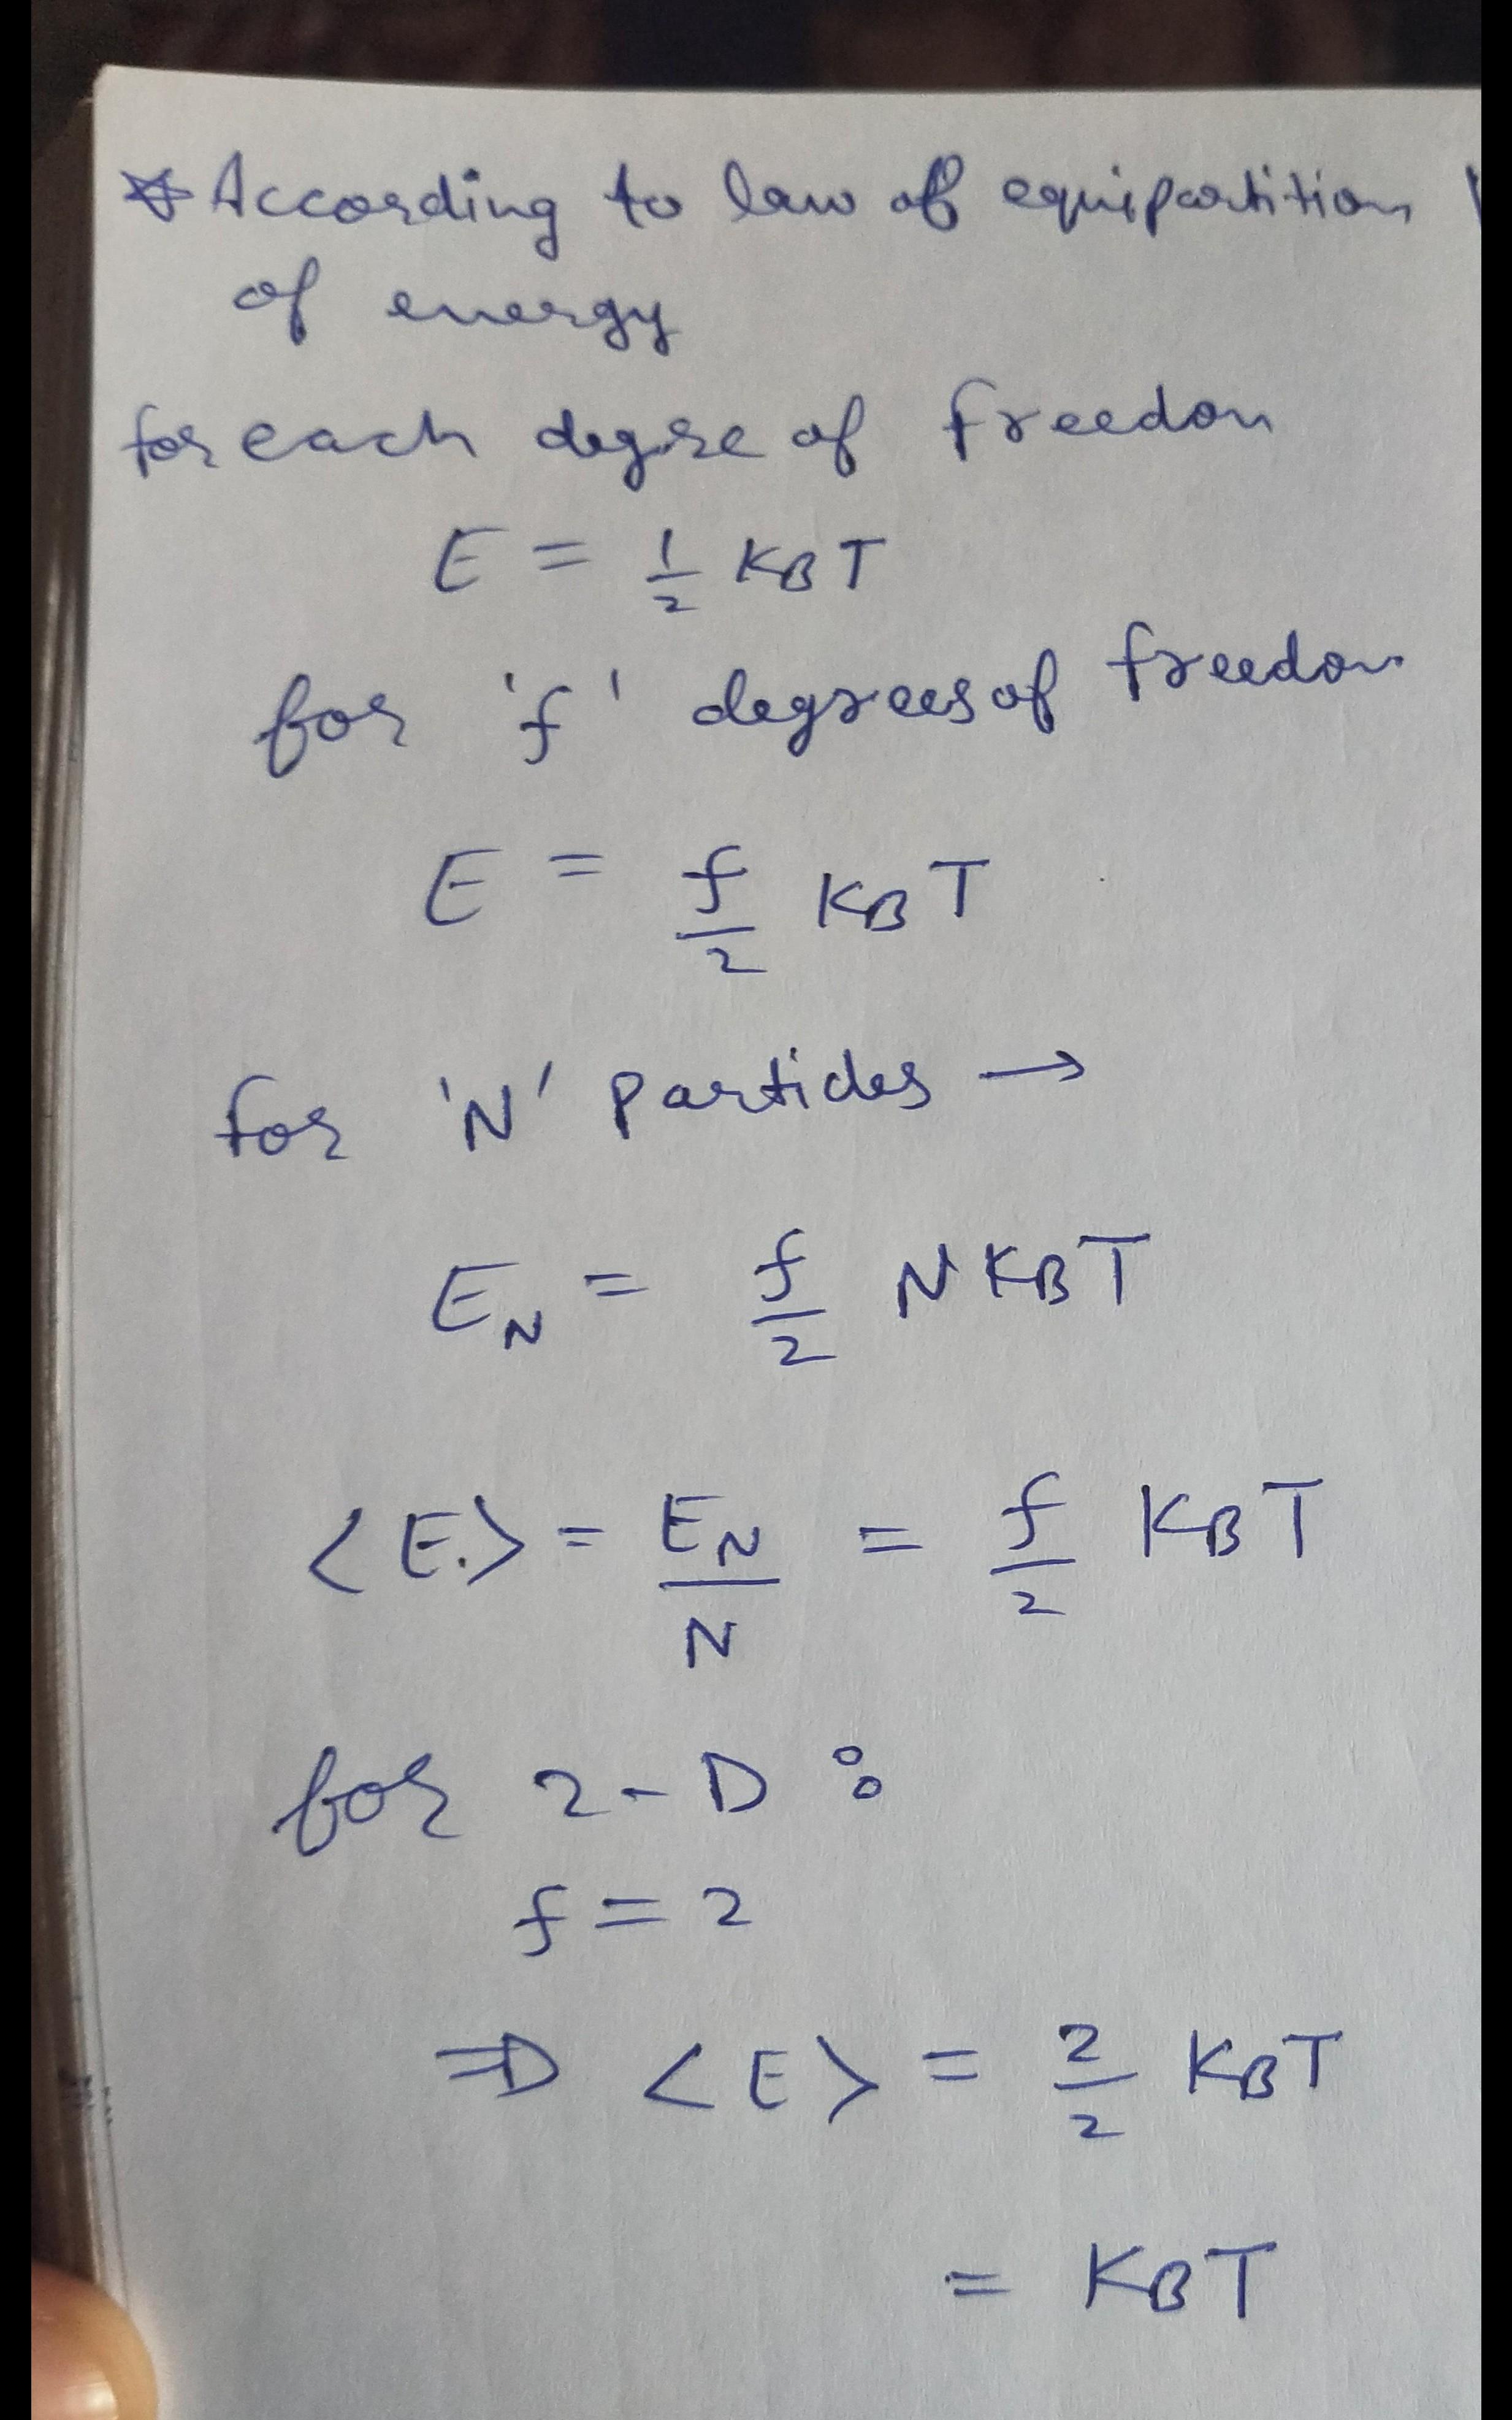 * According to law of equipartition
of energy
for each degre of freedom
E = 1/2 KBT
for 'f' degrees of freedom
E = f/2 KBT
for 'N' particles →
EN = f/2 NKBT
<E> = EN/N = f/2 KBT
for 2-D :
f = 2
⇒ <E> = 2/2 KBT
= KBT